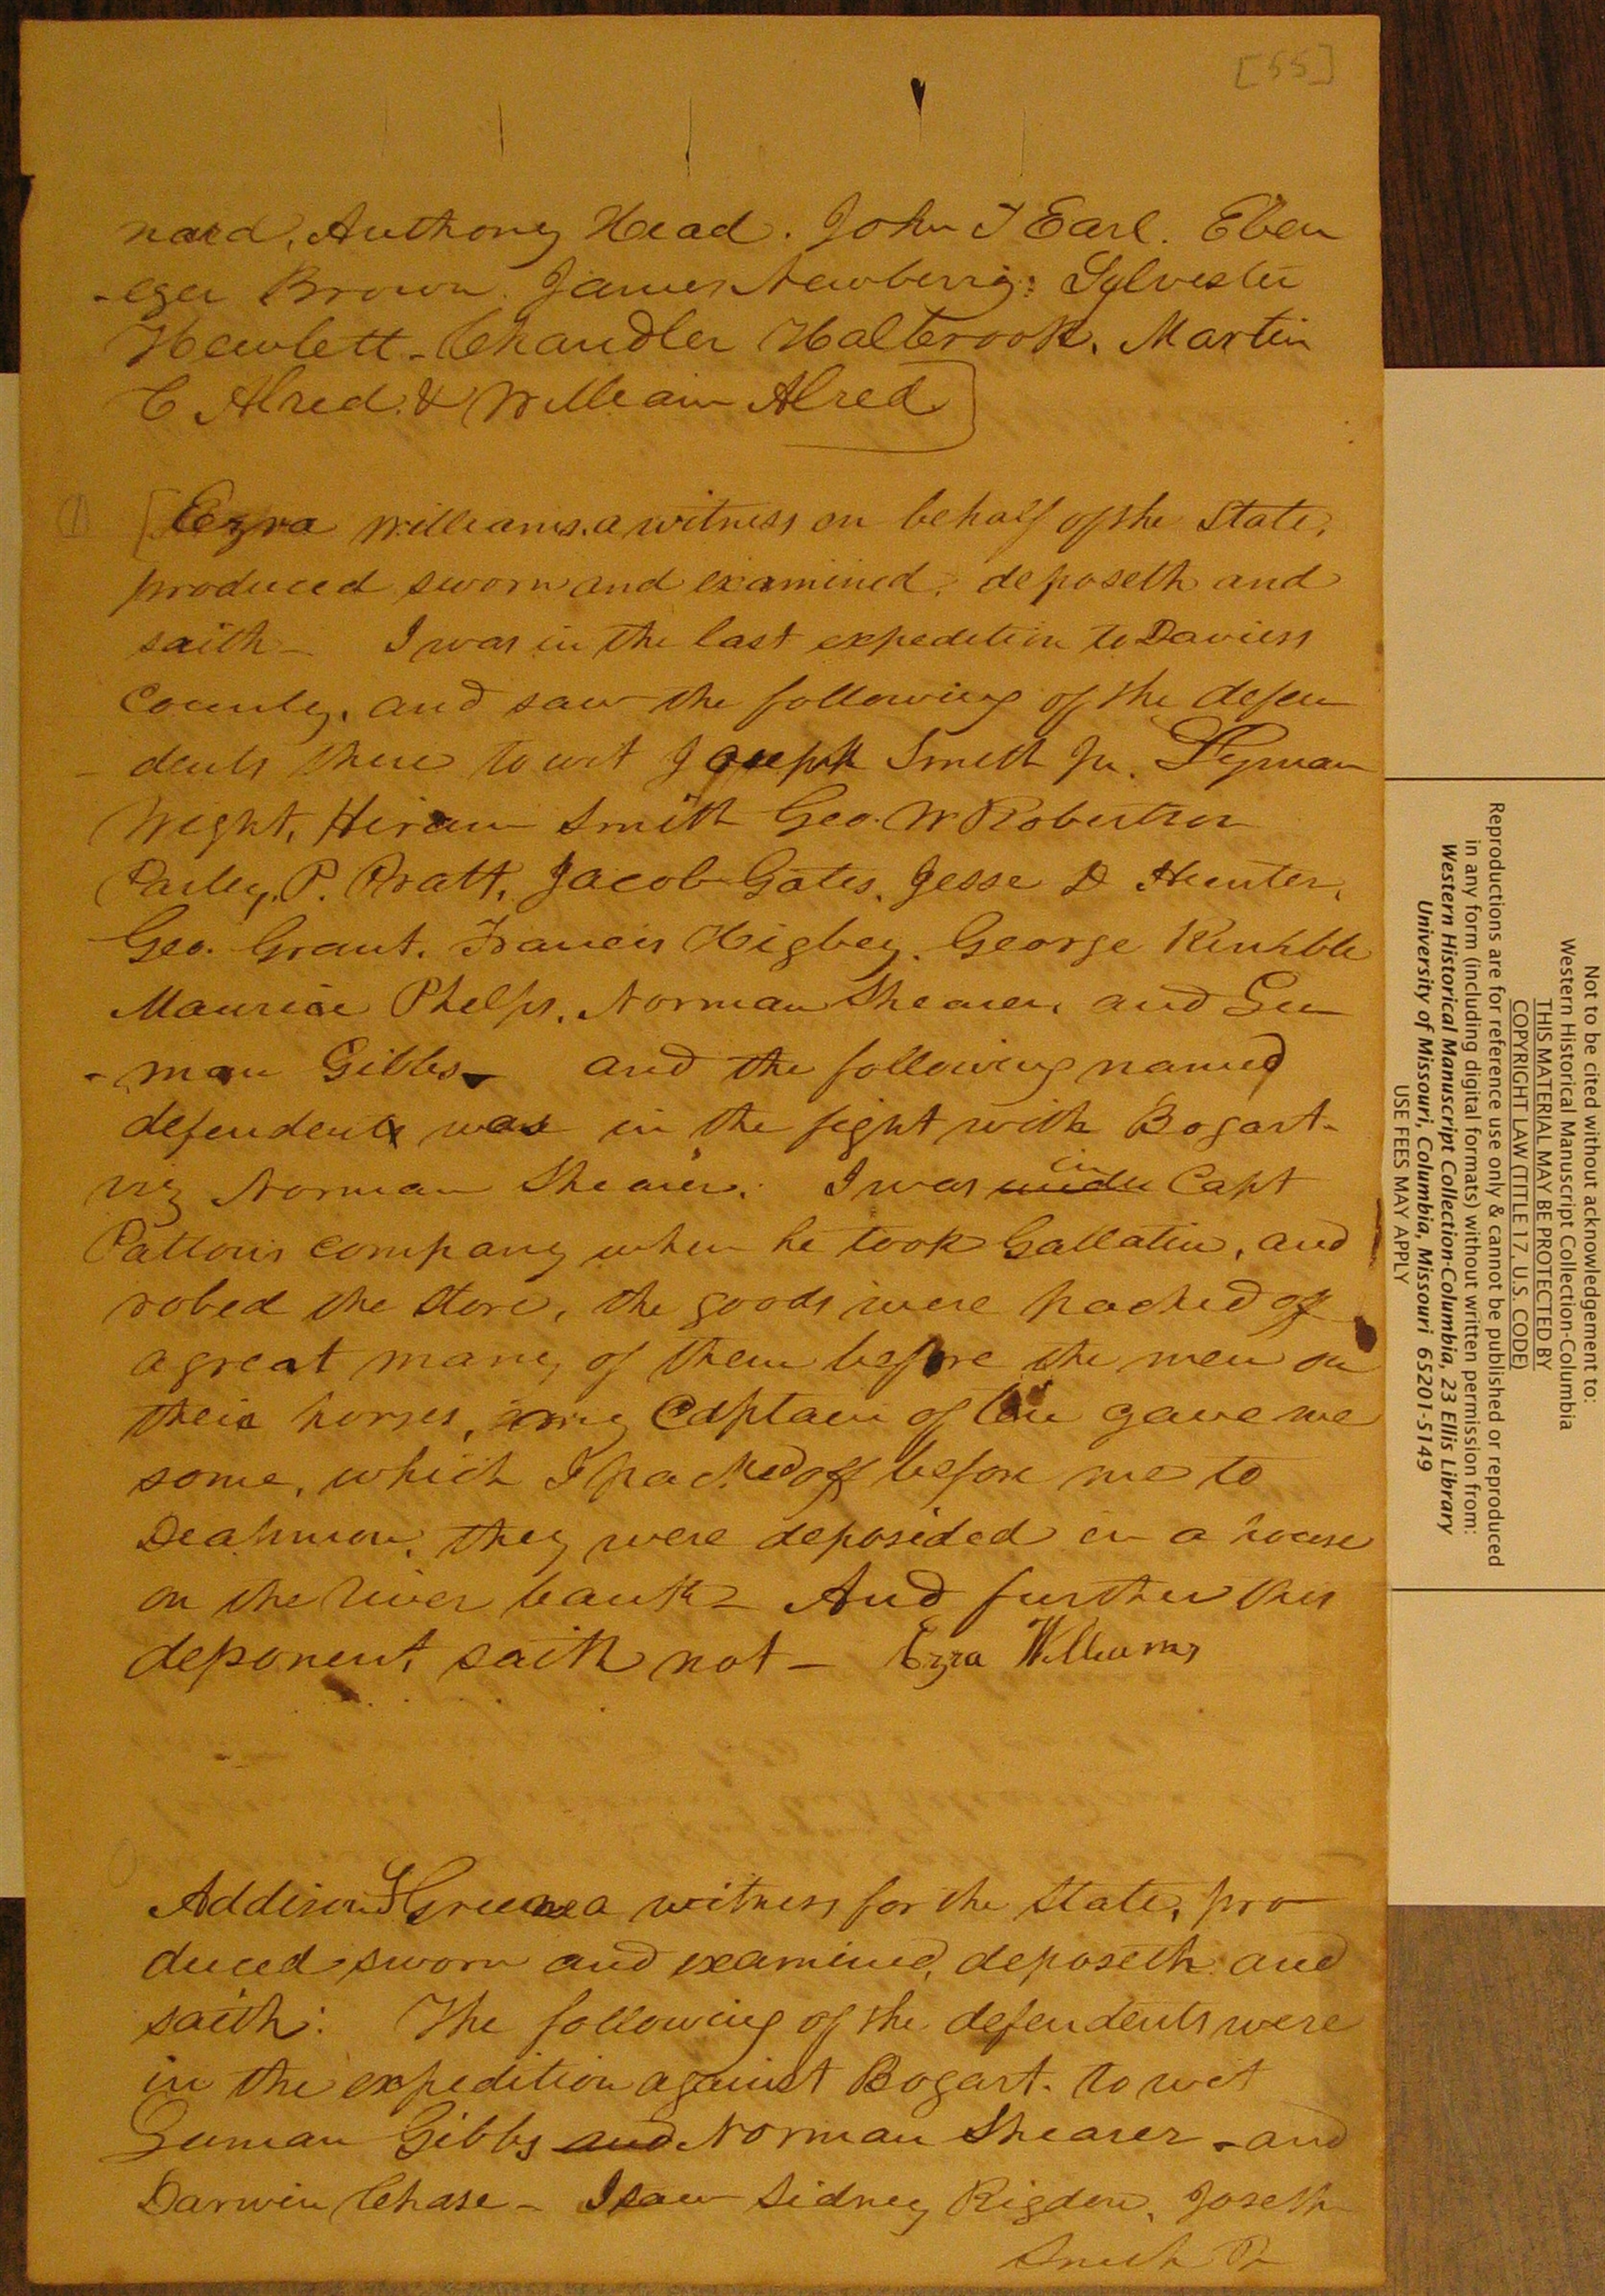 [55]
nard, Anthony Head. John T Earl. Eben
-ezer Brown. James Newberry: Sylvester
Hewlett - Chandler Halbrook, Martin
C Alred. & William Alred
(1) [Ezra Williams. a witness on behalf of the State,
produced sworn and examined, deposeth and
saith - I was in the last expedition to Daviess
County, and saw the following of the defen
- dents there to wit Joseph Smith Jr. Lyman
Wight, Hiram Smith Geo. W Robertson
Parley. P. Pratt, Jacob Gates, Jesse D Hunter,
Geo. Grant. Francis Higbey. George Kimble
Maurice Phelps. Norman Shearer, and Lu
- man Gibbs - and the following named
defendent was in the fight with Bogart -
viz Norman Shearer. I was under in Capt
Pattons company when he took Gallatin, and
robed the store, the goods were packed off
a great many of them before the men on
their horses, my Captain of ten gave me
some, which I packed off before me to
Deahmon, they were deposided in a house
on the river bank - And further this
deponent saith not - Ezra Williams
Addison Greene a witness for the State, pro
duced sworn and examined, deposeth and
saith: The following of the defendents were
in the expedition against Bogart. to wit
Luman Gibbs and Norman Shearer - and
Darwin Chase - I saw Sidney Rigdon, Joseph
Smith Jr
Not to be cited without acknowledgement to:
Western Historical Manuscript Collection-Columbia
THIS MATERIAL MAY BE PROTECTED BY
COPYRIGHT LAW (TITLE 17, U.S. CODE)
Reproductions are for reference use only & cannot be published or reproduced
in any form (including digital formats) without written permission from:
Western Historical Manuscript Collection-Columbia, 23 Ellis Library
University of Missouri, Columbia, Missouri 65201-5149
USE FEES MAY APPLY